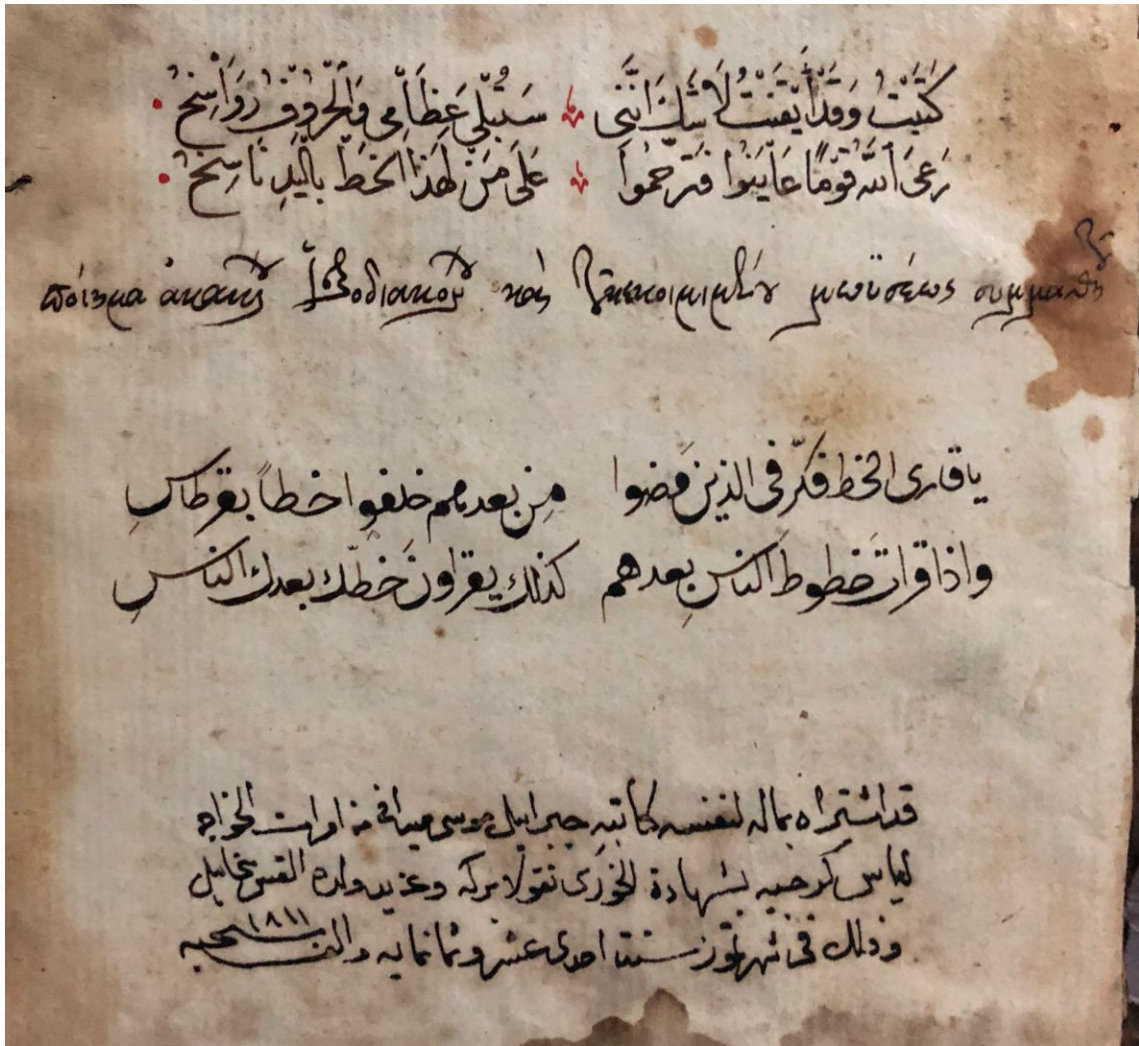 كَتَبْتُ وَقَدْ أَيْقَنْتُ لَا شَكَّ أَنَّنِي سَتُبْلَى عَظَامِي وَالْحُرُوفُ رَوَاسِخُ
رَعَى اللّٰهُ قَوْمًا عَايَنُوا فَتَرَحَّمُوا عَلَى مَنْ لِهَذَا الْخَطِّ بِالْيَدِ نَاسِخُ
ποίημα ἀκακίου ἱεροδιακόνου καὶ μωϋσέως
يا قارى الخط فكّر فى الذين مَضوا مِن بعدهم خلفوا خطاً بقرطاسِ
واذا قراتَ خطوطَ الناسِ بعدهم كذلك يقراون خطّك بعدك الناسِ
قد اشتراه بماله لنفسه كاتبه جبراييل موسى من الخواجه
لياس بشهادة الخورى نقولا بركه وولده القس مخاييل
وذلك فى شهر تموز سنة احدى عشر وثمانمايه والف مسيحيه ١٨١١